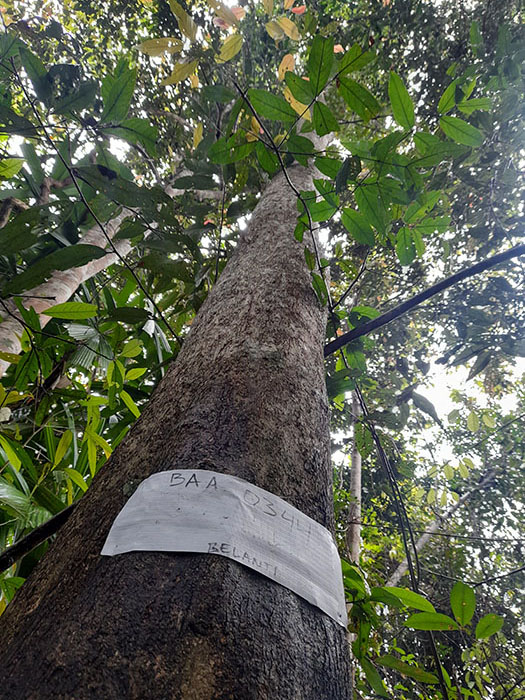 BAA 0344
BELANTI